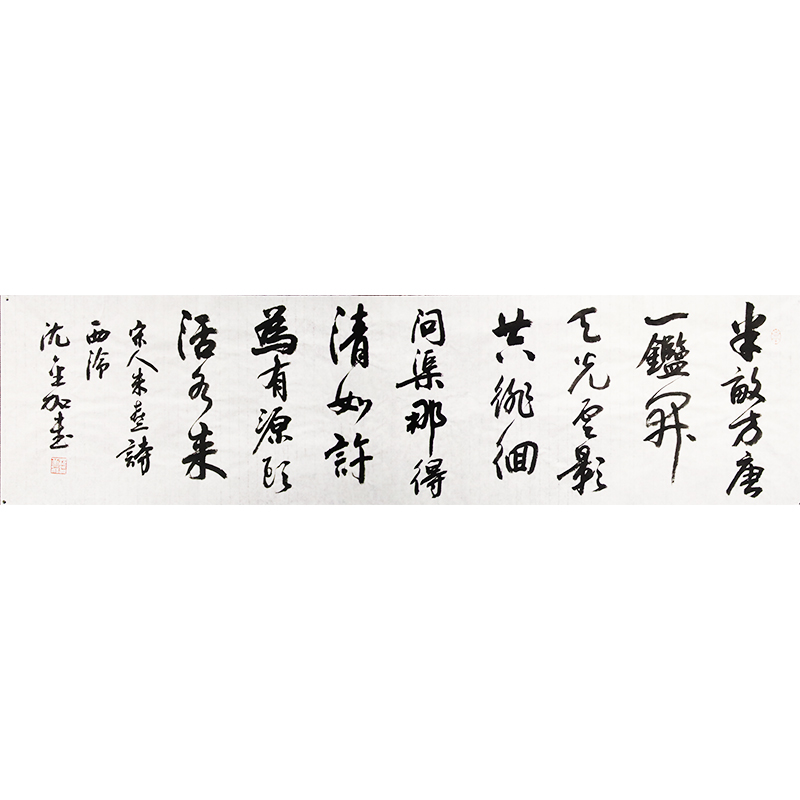 半畝方唐
一鑑開
天光雲影
共徘徊
問渠那得
清如許
為有源頭
活水来
宋人朱熹詩
西泠
沈加書